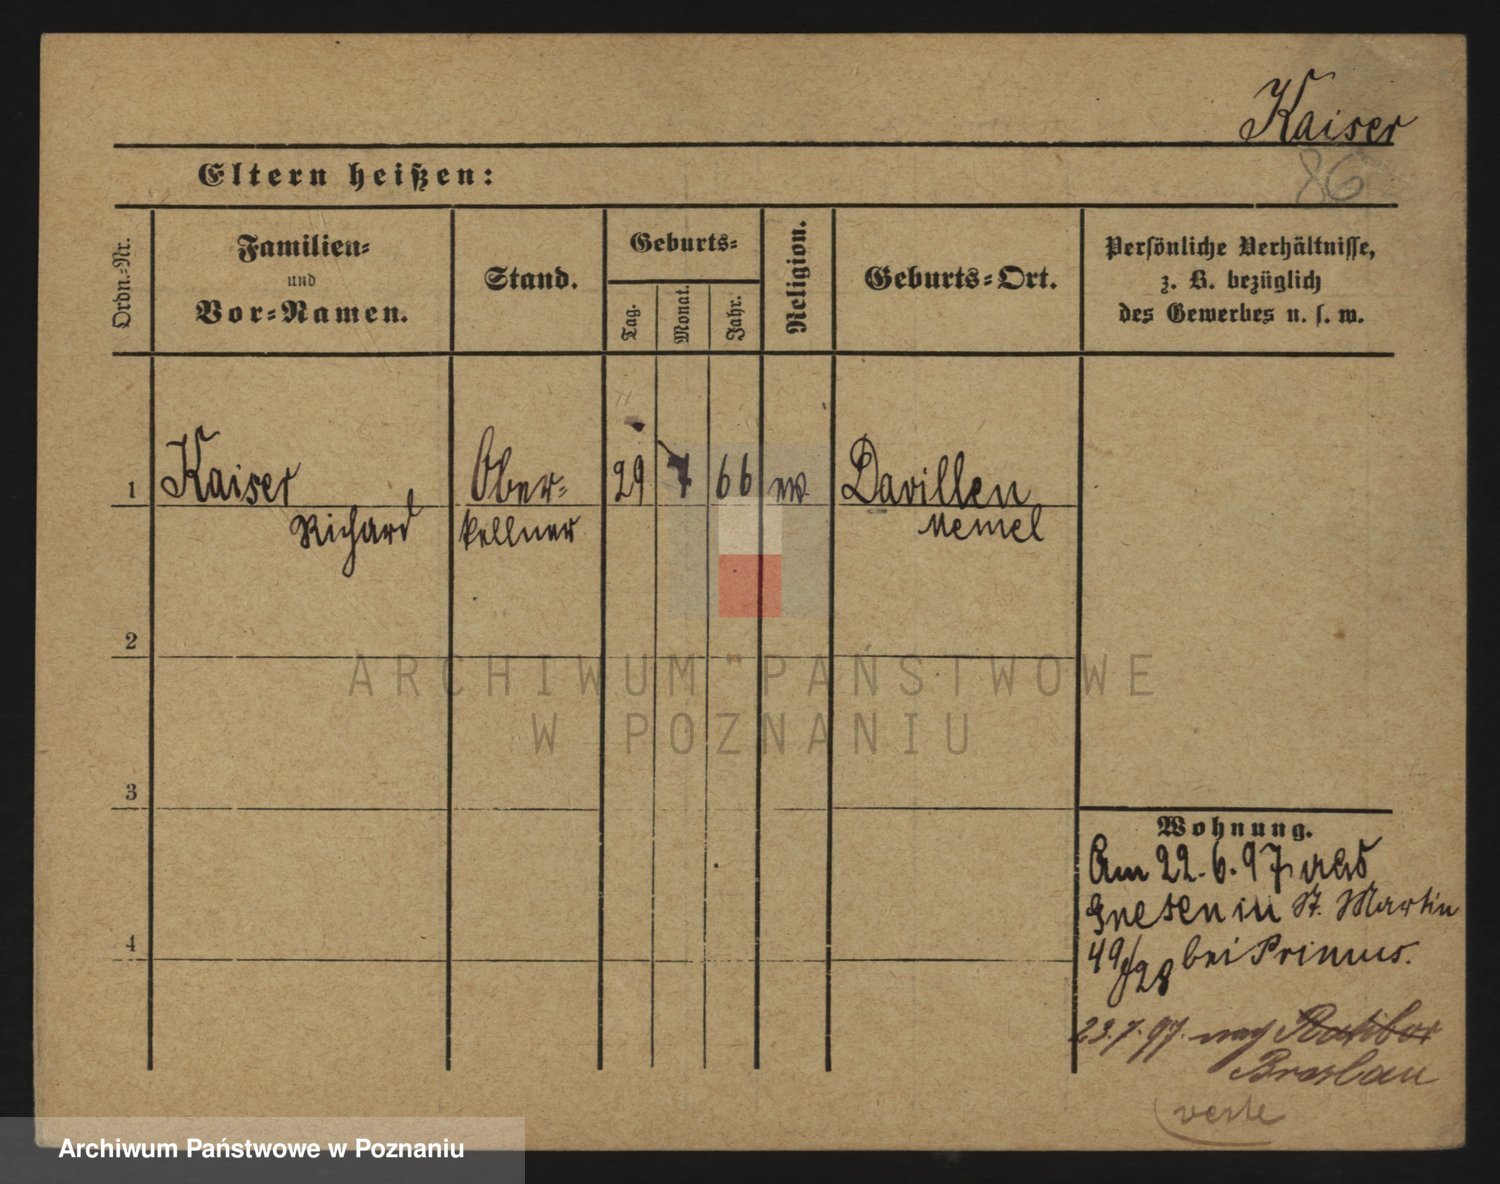 Kaiser
86
Eltern heißen:
Ordn.-Nr.
Familien-
und
Vor-Namen.
Stand.
Geburts-
Tag.
Monat.
Jahr.
Religion.
Geburts-Ort.
Persönliche Verhältnisse,
z. B. bezüglich
des Gewerbes u. s. w.
1 Kaiser Ober- 29 7 66 Davillen
Richard kellner Memel
2
3
4
ARCHIWUM PAŃSTWOWE
W POZNANIU
Wohnung.
Am 22.6.97 aus
Gnesen in St. Martin
49/28 bei Primus.
23.7.97. nach Ratibor
Breslau
Archiwum Państwowe w Poznaniu